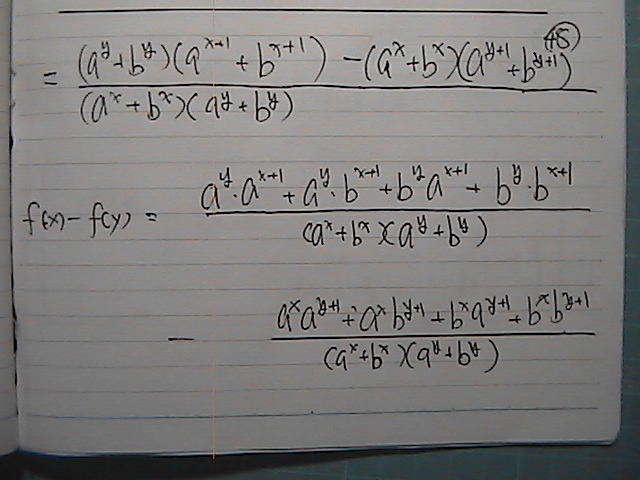 (45)
= \frac{(a^y+b^y)(a^{x+1}+b^{x+1})-(a^x+b^x)(a^{y+1}+b^{y+1})}{(a^x+b^x)(a^y+b^y)}
f(x)-f(y) = \frac{a^y \cdot a^{x+1}+a^y \cdot b^{x+1}+b^y a^{x+1}+b^y \cdot b^{x+1}}{(a^x+b^x)(a^y+b^y)}
- \frac{a^x a^{y+1}+a^x b^{y+1}+b^x a^{y+1}+b^x b^{y+1}}{(a^x+b^x)(a^y+b^y)}